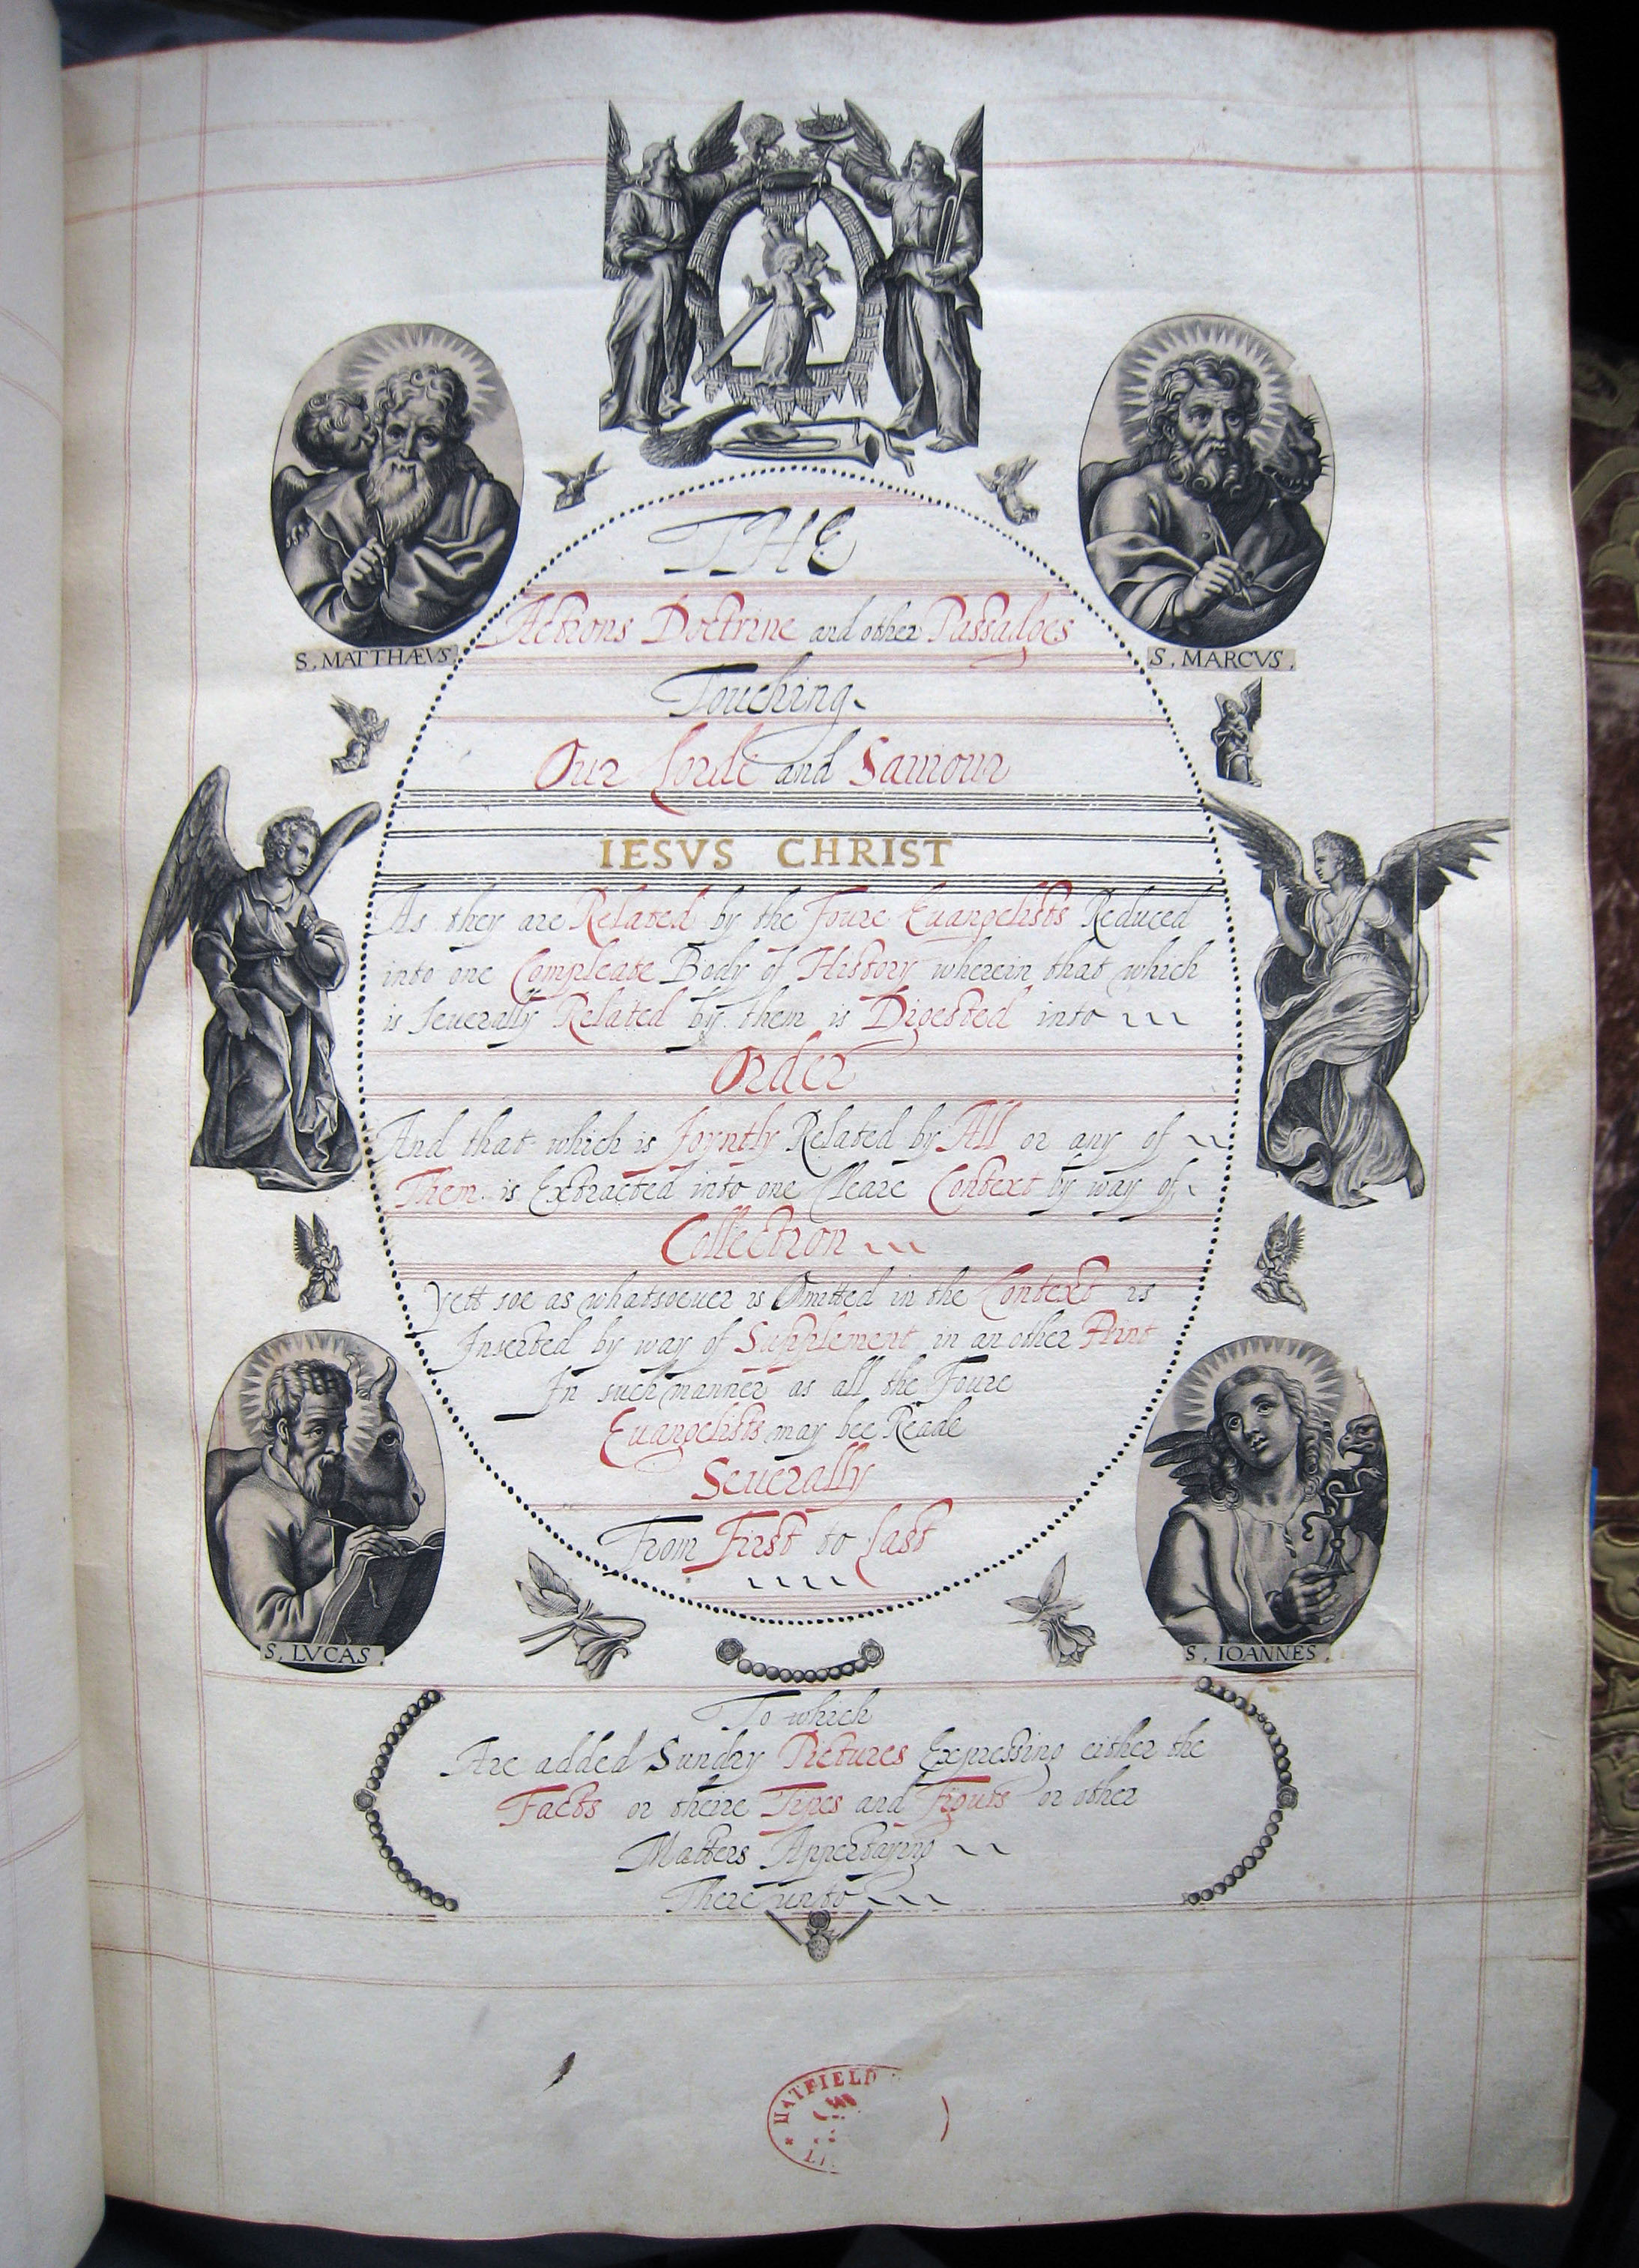 THE
Actions Doctrine and other Passadges
Touching
Our Lorde and Sauiour
IESVS CHRIST
As they are Related by the Foure Euangelists Reduced
into one Compleate Body of History wherein that which
is Seuerally Related by them is Digested into
Order
And that which is Joyntly Related by All or any of
Them is Extracted into one Cleare Context by way of
Collection
Yett soe as whatsoeuer is Omitted in the Context is
Inserted by way of Supplement in an other Print
In such manner as all the Foure
Euangelists may bee Reade
Seuerally
From First to Last
S. MATTHÆVS
S. MARCVS.
S. LVCAS.
S. IOANNES.
To which
Are added Sundry Pictures Expressing either the
Facts or theire Types and Figurs or other
Matters Appertayning
There unto
HATFIELD